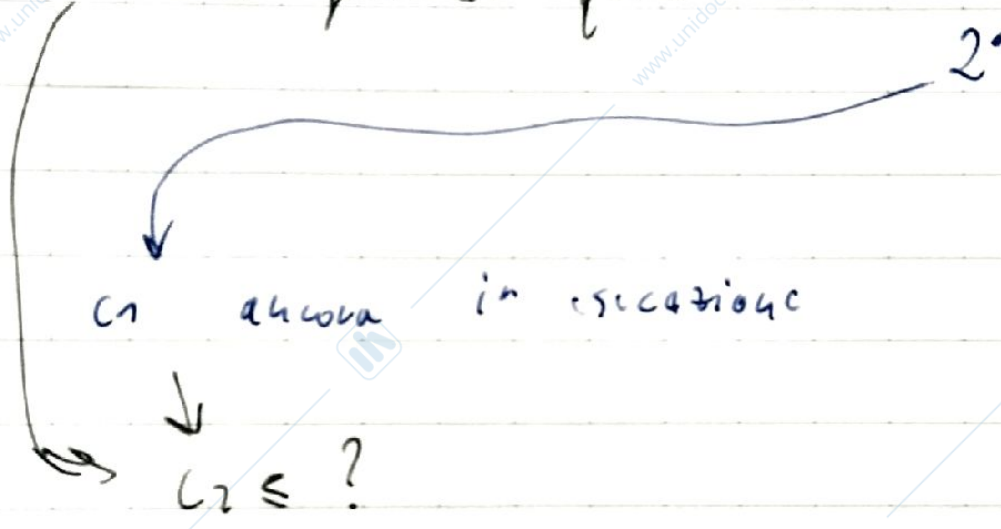 2°
C1 ancora in esecuzione
C2 ≤ ?